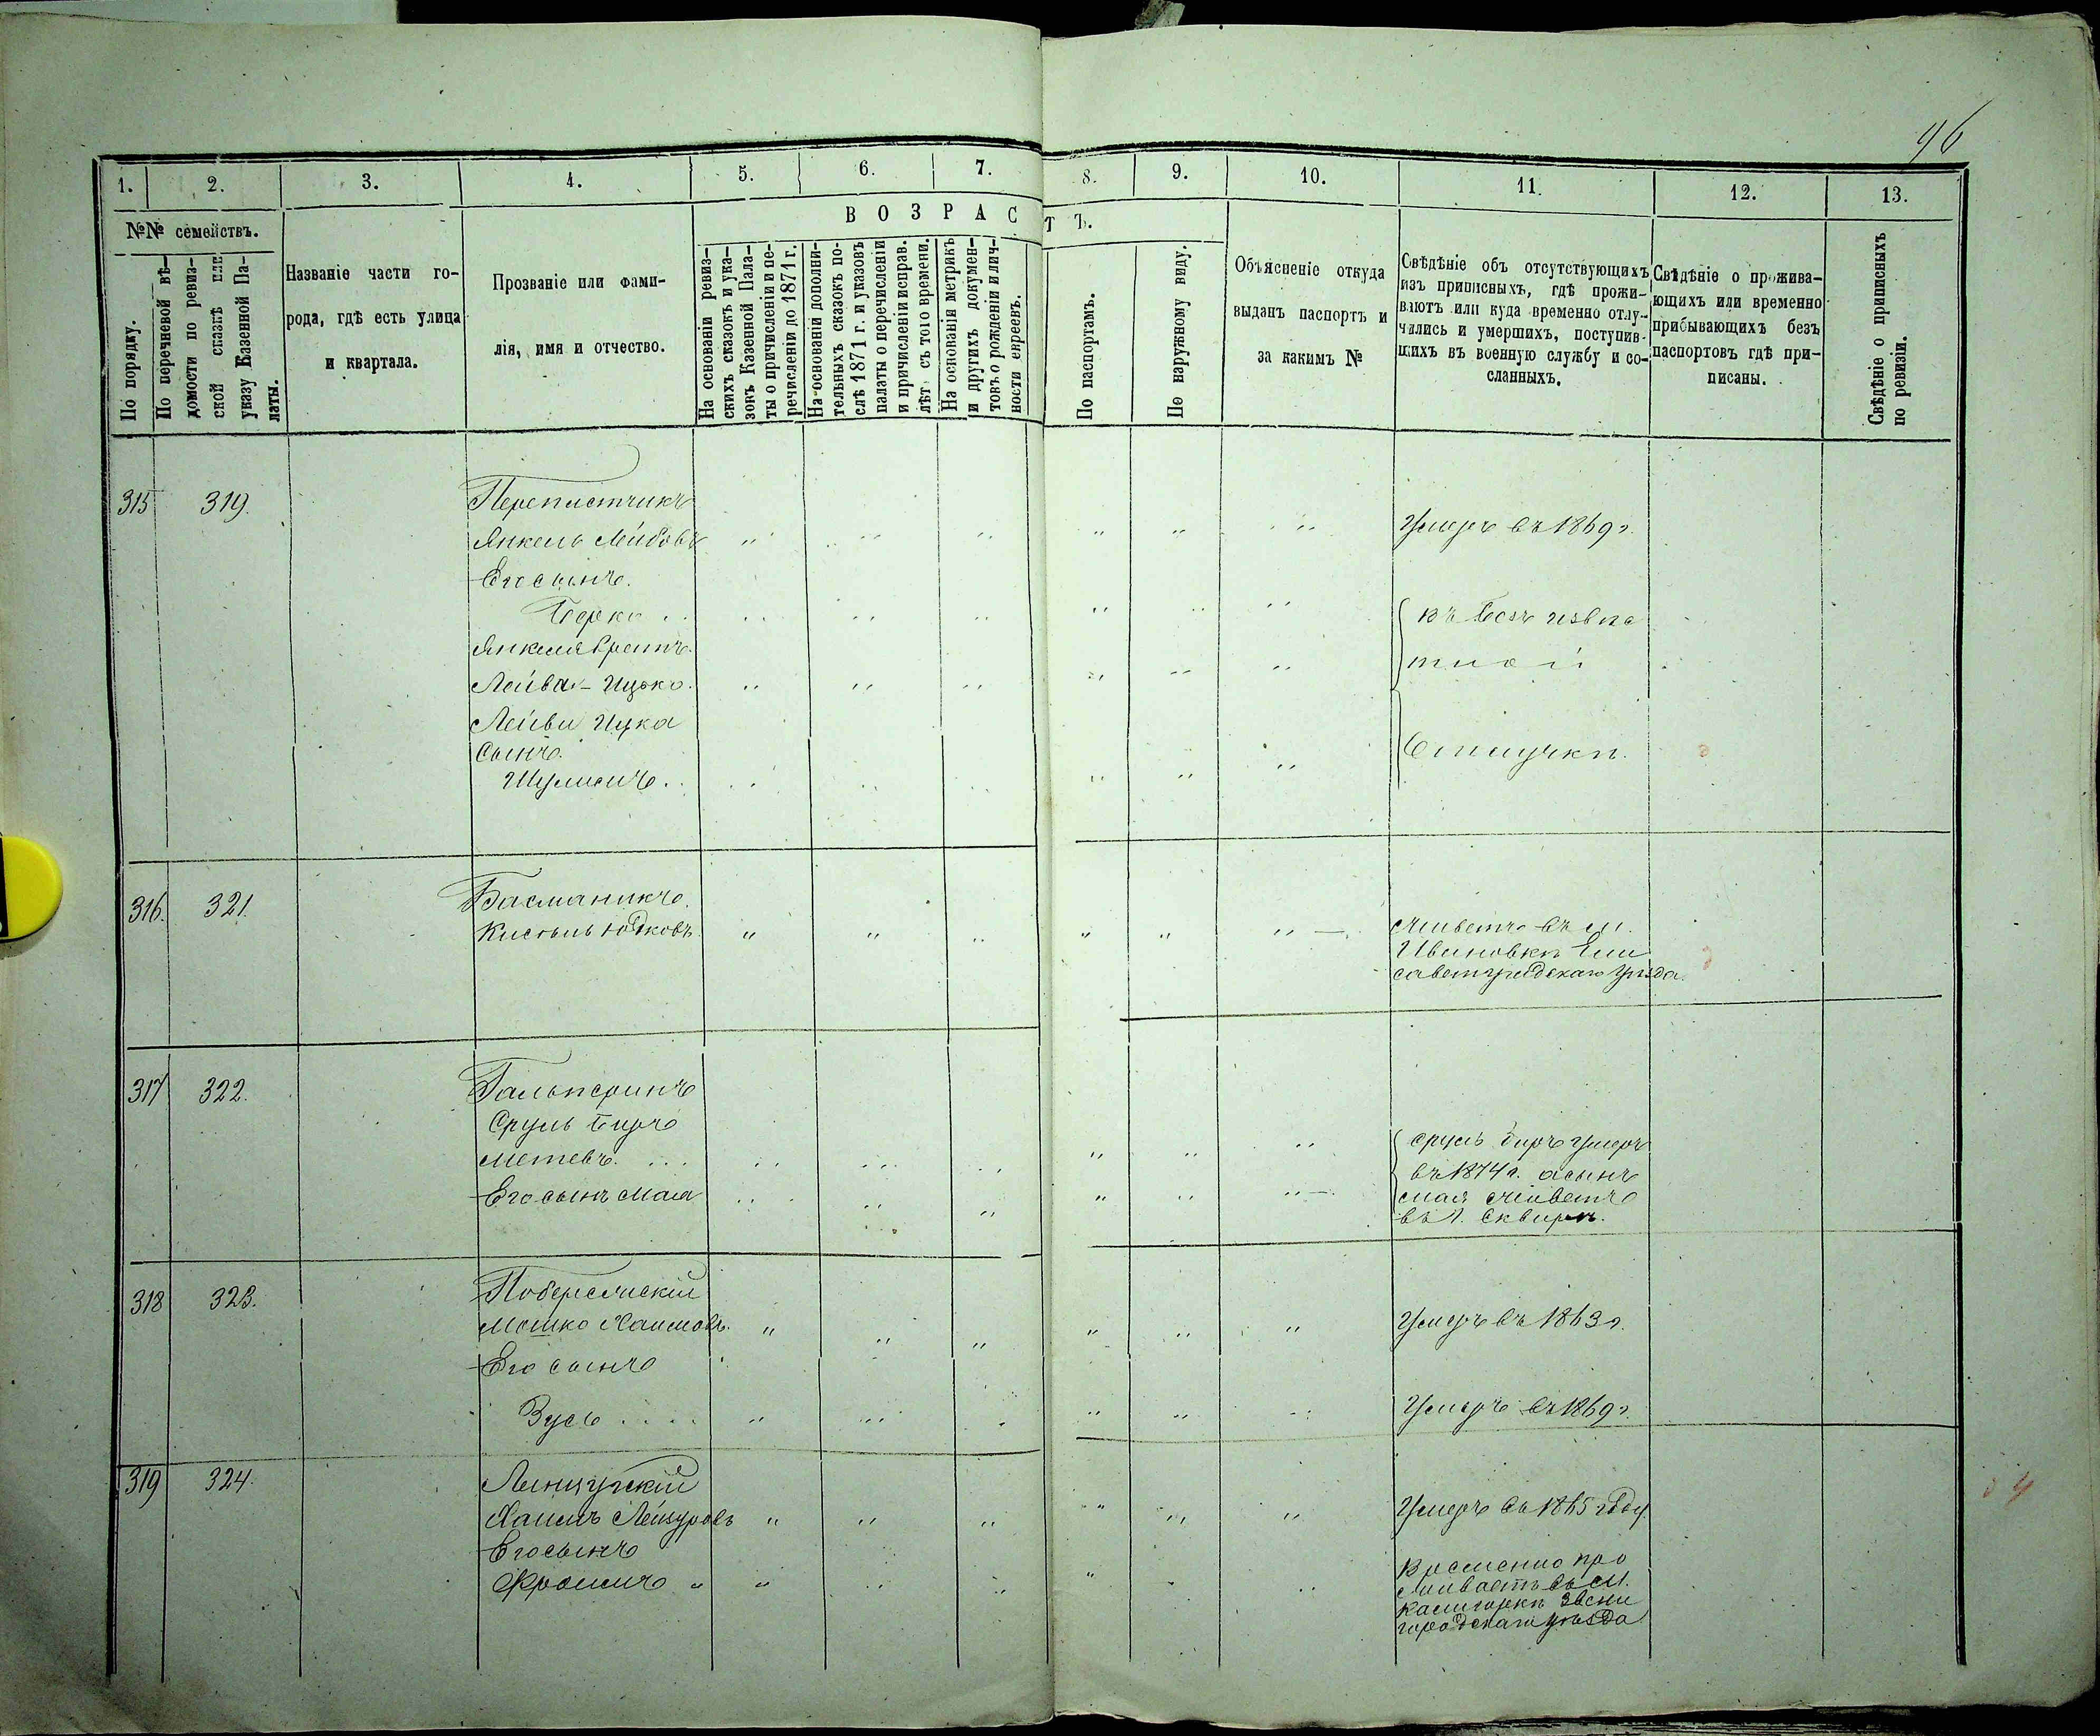 96
1. 2. 3. 4. 5. 6. 7. 8. 9. 10. 11. 12. 13.
№№ семействъ.
В О З Р А С Т Ъ.
По порядку.
По перечневой вѣ-
домости по ревиз-
ской сказкѣ или
указу Казенной Па-
латы.
Названіе части го-
рода, гдѣ есть улица
и квартала.
Прозваніе или фами-
лія, имя и отчество.
На основаніи ревиз-
скихъ сказокъ и ука-
зокъ Казенной Пала-
ты о причисленіи и пе-
речисленіи до 1871 г.
На основаніи дополни-
тельныхъ сказокъ по-
слѣ 1871 г. и указовъ
палаты о перечисленіи
и причисленіи исправ.
лѣт. съ того времени.
На основаніи метрикъ
и другихъ докумен-
товъ о рожденіи и лич-
ности евреевъ.
По паспортамъ.
По наружному виду.
Объясненіе откуда
выданъ паспортъ и
за какимъ №
Свѣдѣніе объ отсутствующихъ
изъ приписныхъ, гдѣ прожи-
ваютъ или куда временно отлу-
чились и умершихъ, поступив-
шихъ въ военную службу и со-
сланныхъ.
Свѣдѣніе о прожива-
ющихъ или временно
прибывающихъ безъ
паспортовъ гдѣ при-
писаны.
Свѣдѣніе о приписныхъ
по ревизіи.
315 319. Переписчикъ
Янкель Лейбовъ Умеръ въ 1869 г.
Его сынъ.
Берко въ безъ извѣс
Янкеля братъ.
Лейба-Ицко. тной
Лейби Ицка
сынъ. отлучкѣ.
Шулимъ
316. 321. Басманикъ.
Кисѣль Юдковъ живетъ въ м.
Ивановкѣ Ели
саветградскаго уѣзда.
317 322. Гальперинъ
Сруль Биръ
Метевъ. Сруль Биръ умеръ
въ 1874 г. а сынъ
Его сынъ Мая Мая живетъ
въ г. Сквирѣ.
318 323. Побережскій
Мошко Хаимовъ. Умеръ въ 1863 г.
Его сынъ
Зусь Умеръ въ 1869 г.
319 324.
Хаимъ Лейзуровъ Умеръ въ 1865 году.
Его сынъ
Фроимъ Временно про
живаетъ въ м.
Калигоркѣ Звени
городскаго уѣзда